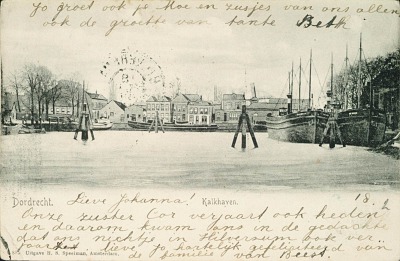 Jo groet ook je Moe en zusjes van ons allen
ook de groete van tante Beth
Dordrecht.
Kalkhaven.
Lieve Johanna!
18.2
Onze zuster Cor verjaart ook heden
en daarom kwam ons in de gedachte
dat ons nechtje in Hilversum ook ver-
lieve Jo hartelijk gefeliciteerd van
de familie van Beest.
Uitgave B. S. Speelman, Amsterdam.